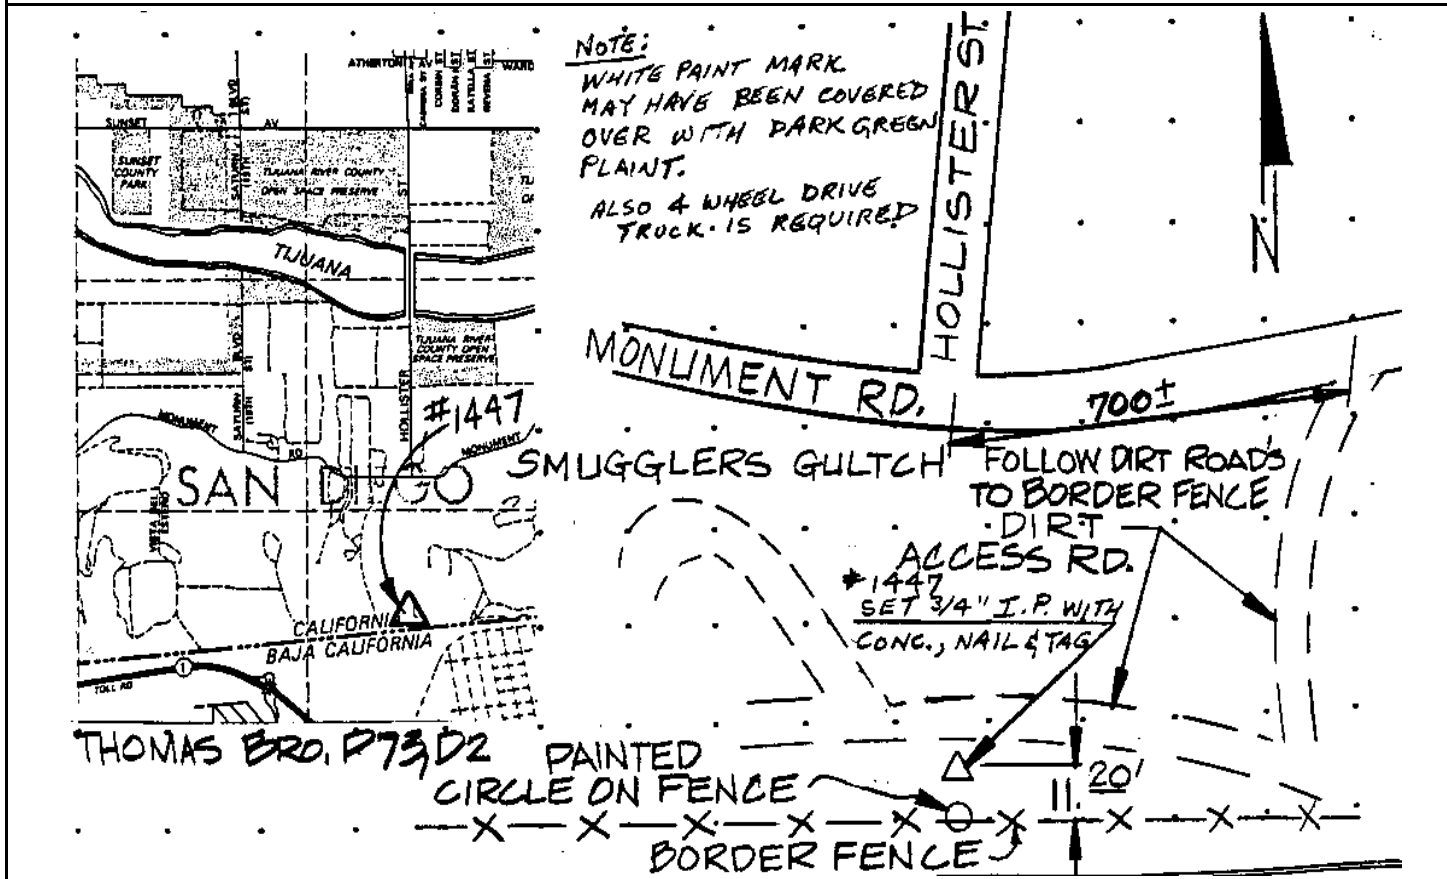 ATHERTON
AV
CORBIN ST
DORAN ST
KATELLA ST
NEVENA ST
WARD
SUNSET
AV
SATURN
BLVD
SUNSET
COUNTY
PARK
TIJUANA RIVER COUNTY
OPEN SPACE PRESERVE
ST
TIJUANA
TIJUANA RIVER
COUNTY OPEN
SPACE PRESERVE
SATURN
BLVD
HOLLISTER
#1447
MONUMENT
RD
MONUMENT
SAN DIEGO
CALIFORNIA
BAJA CALIFORNIA
1
TOLL RD
THOMAS BRO. P73, D2
NOTE:
WHITE PAINT MARK
MAY HAVE BEEN COVERED
OVER WITH DARK GREEN
PLAINT.
ALSO 4 WHEEL DRIVE
TRUCK. IS REQUIRED
HOLLISTER ST.
N
MONUMENT RD.
700±
SMUGGLERS GULTCH
FOLLOW DIRT ROAD'S
TO BORDER FENCE
DIRT
ACCESS RD.
#1447
SET 3/4" I.P. WITH
CONC., NAIL & TAG
PAINTED
CIRCLE ON FENCE
11.
20'
BORDER FENCE